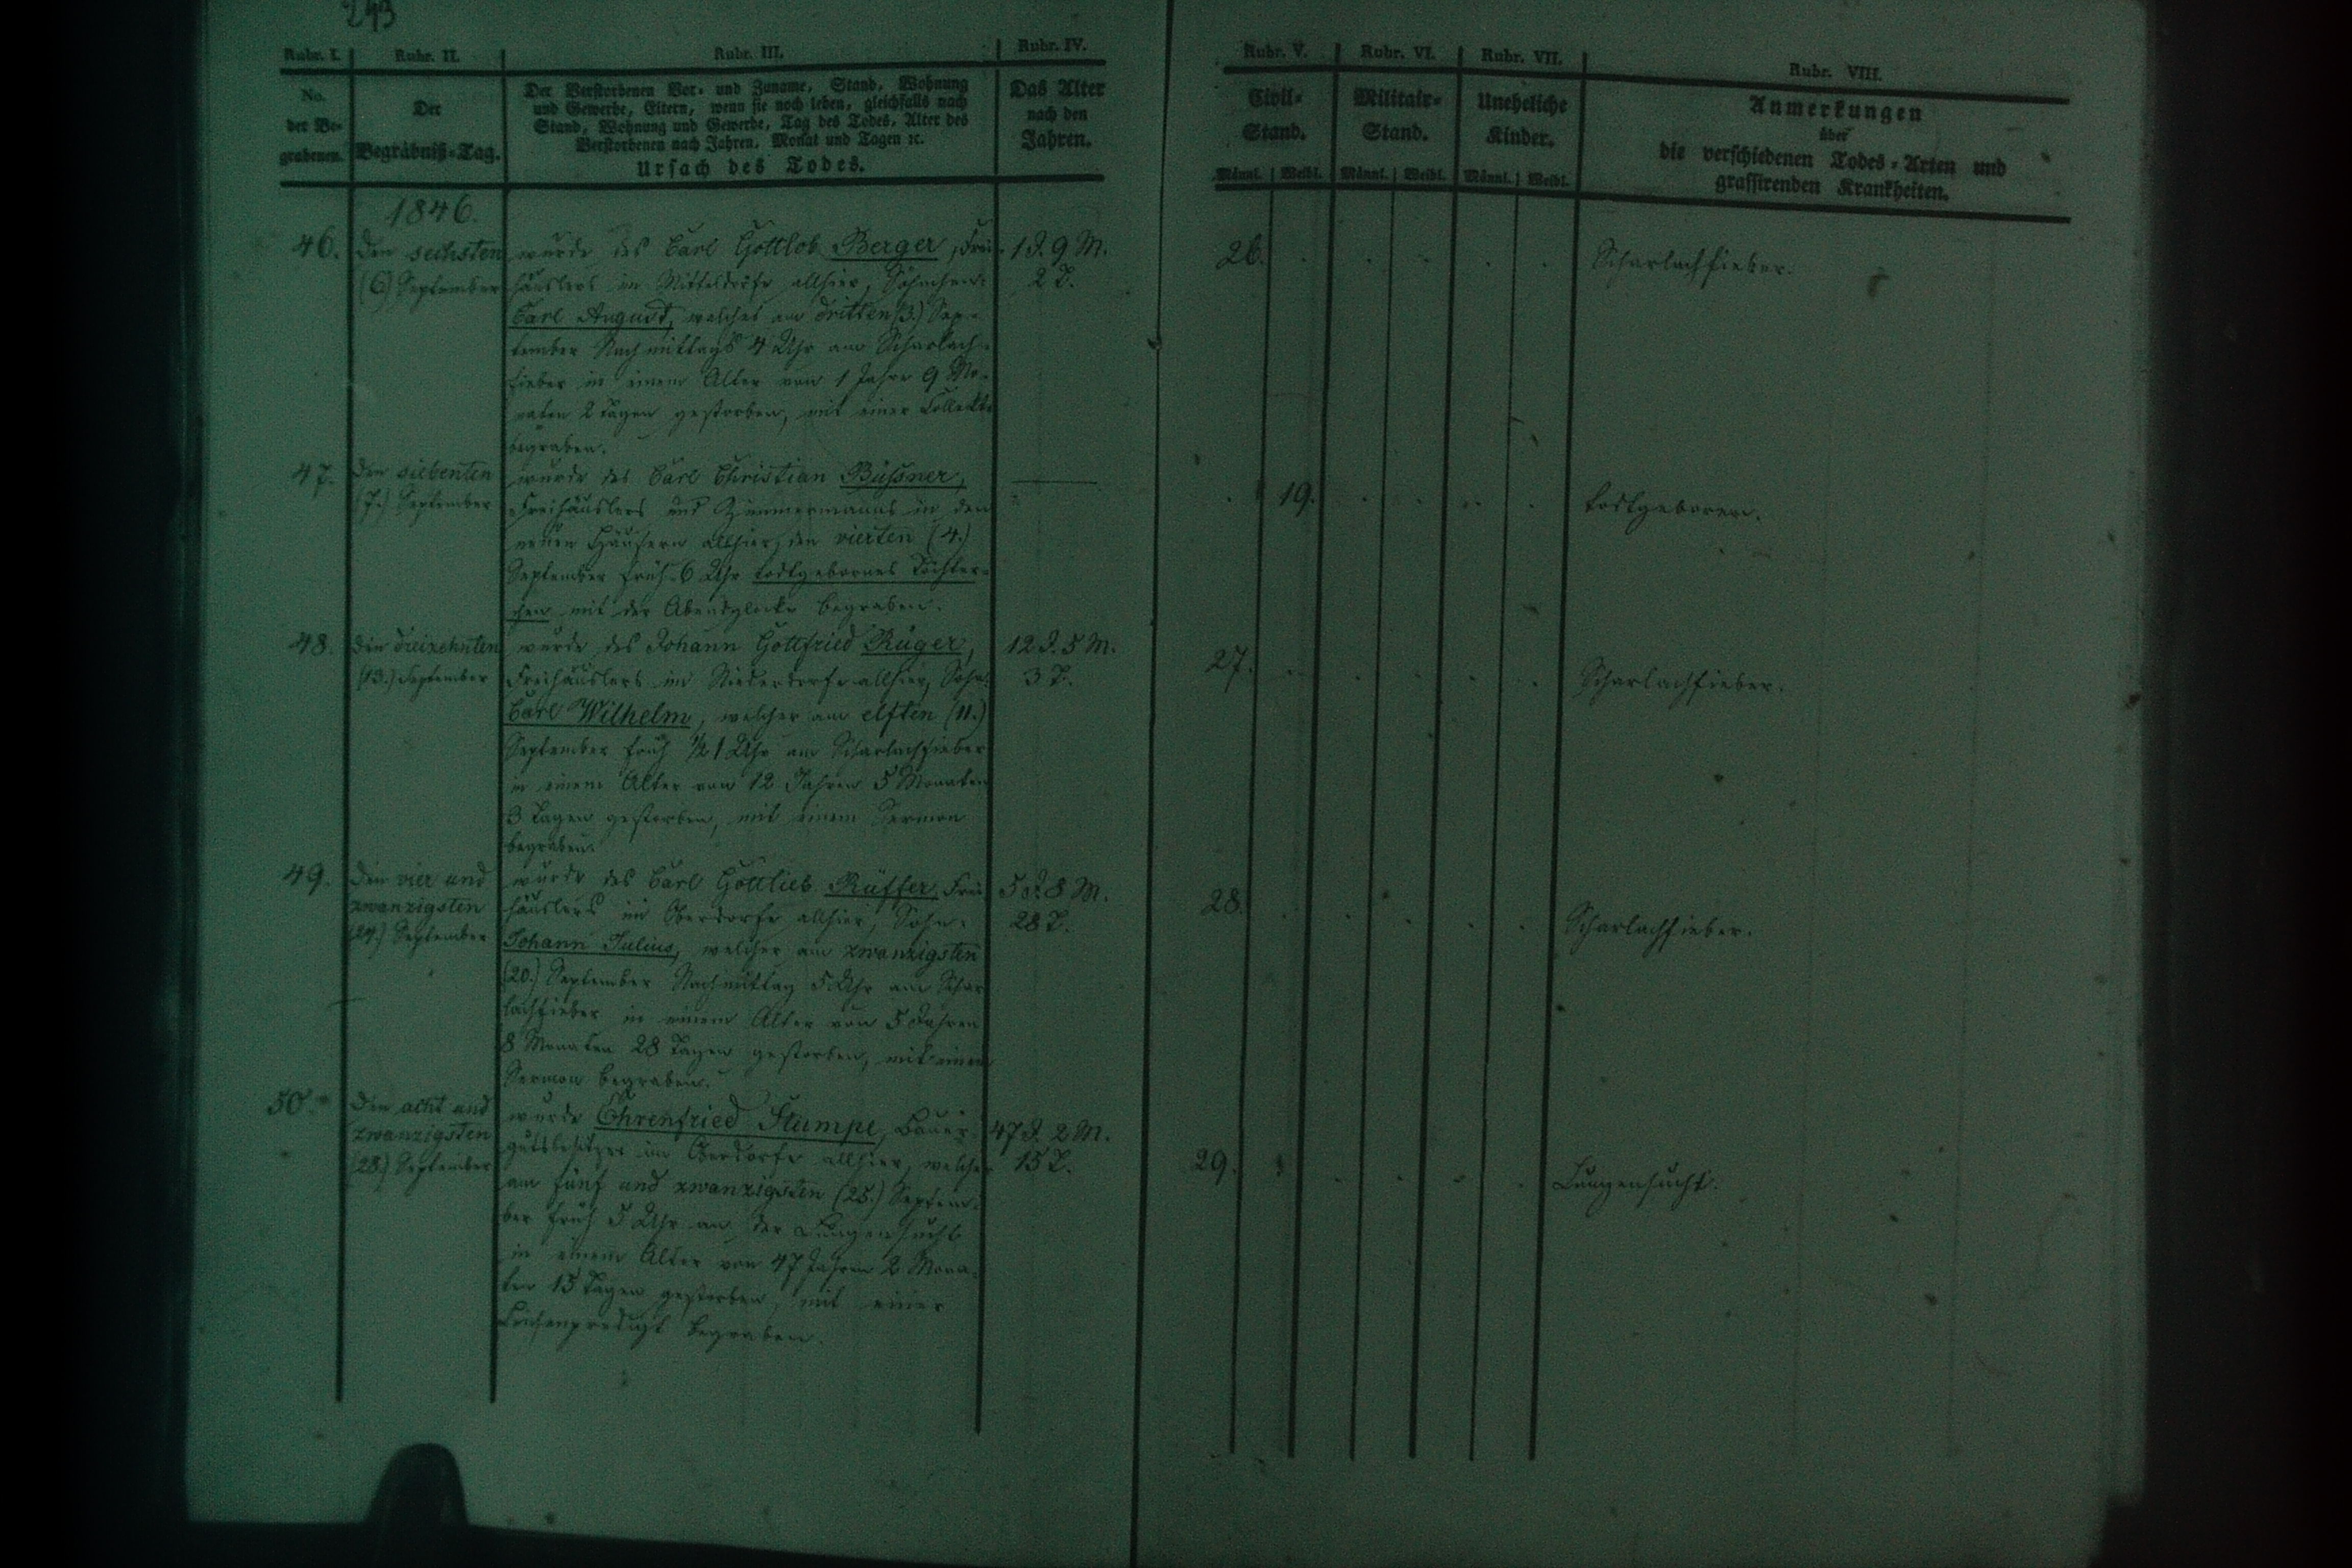 293
Rubr. I. Rubr. II. Rubr. III. Rubr. IV. Rubr. V. Rubr. VI. Rubr. VII. Rubr. VIII.
No. der Be-
grabenen.
Der
Begräbniß-Tag.
Der Verstorbenen Vor- und Zuname, Stand, Wohnung
und Gewerbe, Eltern, wenn sie noch leben, gleichfalls nach
Stand, Wohnung und Gewerbe, Tag des Todes, Alter des
Verstorbenen nach Jahren, Monat und Tagen ꝛc.
Ursach des Todes.
Das Alter
nach den
Jahren.
Civil-
Stand.
Männl. Weibl.
Militair-
Stand.
Männl. Weibl.
Uneheliche
Kinder.
Männl. Weibl.
Anmerkungen
über
die verschiedenen Todes-Arten und
grassirenden Krankheiten.
1846.
46.
Den sechsten
(6) September
wurde des Carl Gottlob Berger, Frei-
häuslers im Mitteldorfe allhier, Söhnchen:
Carl August, welches am dritten (3.) Sep-
tember Nachmittags 4 Uhr am Scharlach-
fieber in einem Alter von 1 Jahr 9 Mo-
naten 2 Tagen gestorben, mit einer Collekte
begraben.
1 J. 9 M.
2 T.
26.
Scharlachfieber.
47.
Den siebenten
(7.) September
wurde des Carl Christian Büßner,
Freihäuslers und Zimmermanns in den
neuen Häusern allhier, den vierten (4.)
September früh 6 Uhr todtgebornes Töchter-
chen mit der Abendglocke begraben.
19.
todtgeboren.
48.
Den dreizehnten
(13.) September
wurde des Johann Gottfried Rüger,
Freihäuslers im Niederdorfe allhier, Sohn:
Carl Wilhelm, welcher am elften (11.)
September früh ½ 1 Uhr am Scharlachfieber
in einem Alter von 12 Jahren 5 Monaten
3 Tagen gestorben, mit einem Sermon
begraben.
12 J. 5 M.
3 T.
27.
Scharlachfieber.
49.
Den vier und
zwanzigsten
(24.) September
wurde des Carl Gottlieb Rüffer, Frei-
häuslers im Oberdorfe allhier, Sohn:
Johann Julius, welcher am zwanzigsten
(20.) September Nachmittag 5 Uhr am Schar-
lachfieber in einem Alter von 5 Jahren
8 Monaten 28 Tagen gestorben, mit einem
Sermon begraben.
5 J. 8 M.
28 T.
28.
Scharlachfieber.
50.
Den acht und
zwanzigsten
(28.) September
wurde Ehrenfried Stumpe, Bauer-
gutsbesitzer im Oberdorfe allhier, welcher
am fünf und zwanzigsten (25.) Septem-
ber früh 5 Uhr an der Lungensucht
in einem Alter von 47 Jahren 2 Mona-
ten 15 Tagen gestorben, mit einer
Leichenpredigt begraben.
47 J. 2 M.
15 T.
29.
Lungensucht.